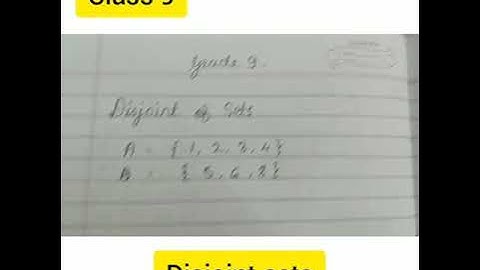 Class 9
Grade 9.
Disjoint of Sets
A = { 1, 2, 3, 4 }
B = { 5, 6, 7 }
Disjoint sets